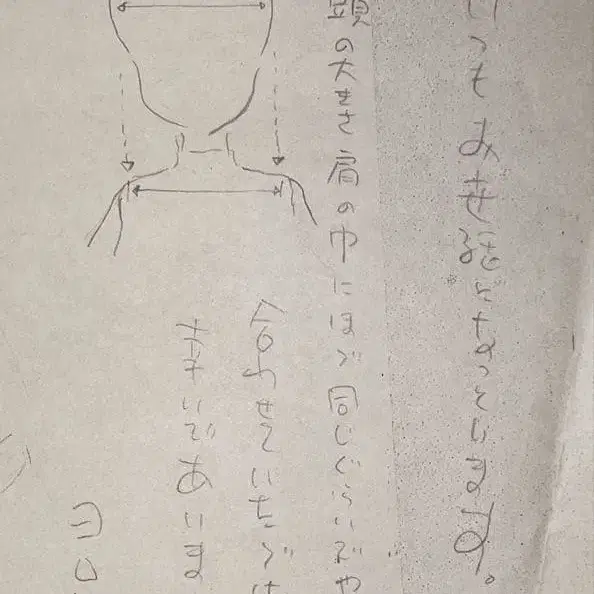 いつもお世話になっています。
頭の大きさ肩の巾にほゞ同じぐらいぞや
合わせていたゞけ
幸いであいま
ヨロ